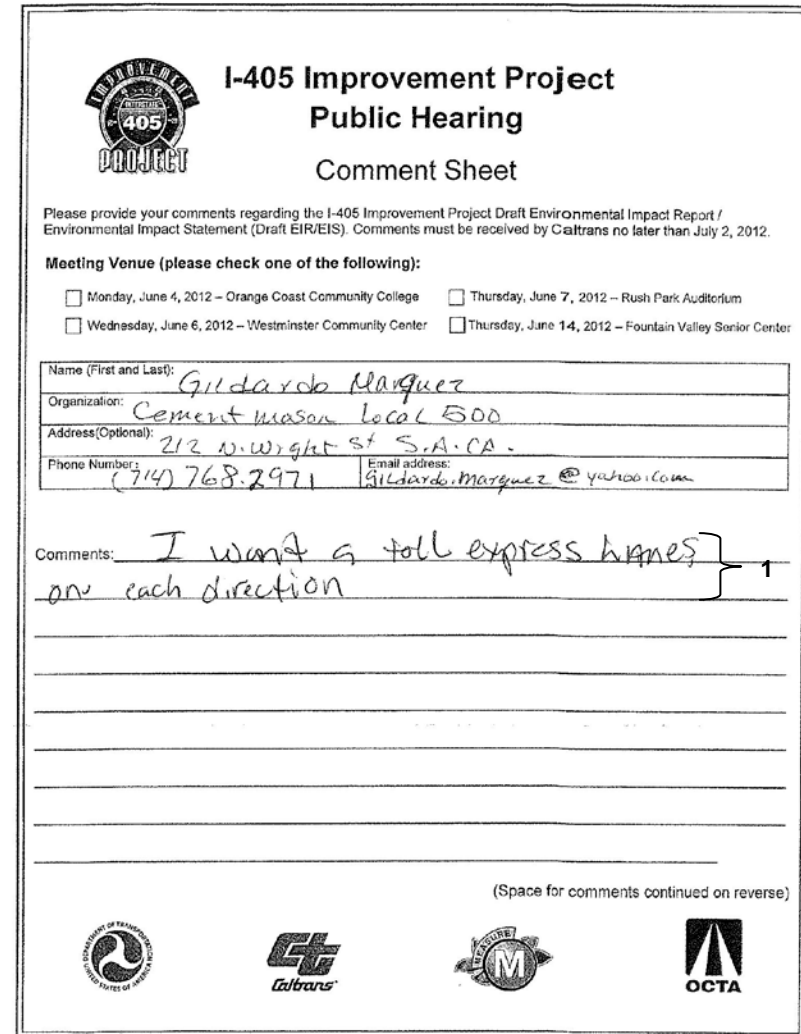 IMPROVEMENT
INTERSTATE
405
PROJECT
I-405 Improvement Project
Public Hearing
Comment Sheet
Please provide your comments regarding the I-405 Improvement Project Draft Environmental Impact Report /
Environmental Impact Statement (Draft EIR/EIS). Comments must be received by Caltrans no later than July 2, 2012.
Meeting Venue (please check one of the following):
Monday, June 4, 2012 – Orange Coast Community College
Thursday, June 7, 2012 – Rush Park Auditorium
Wednesday, June 6, 2012 – Westminster Community Center
Thursday, June 14, 2012 – Fountain Valley Senior Center
Name (First and Last): Gildardo Marquez
Organization: Cement mason local 500
Address(Optional): 212 N. Wright St S.A. CA.
Phone Number: (714) 768.2971
Email address: Gildardo.Marquez@yahoo.com
Comments: I want a toll express lanes
on each direction
1
(Space for comments continued on reverse)
DEPARTMENT OF TRANSPORTATION
UNITED STATES OF AMERICA
Ct
Caltrans
MEASURE
M
OCTA